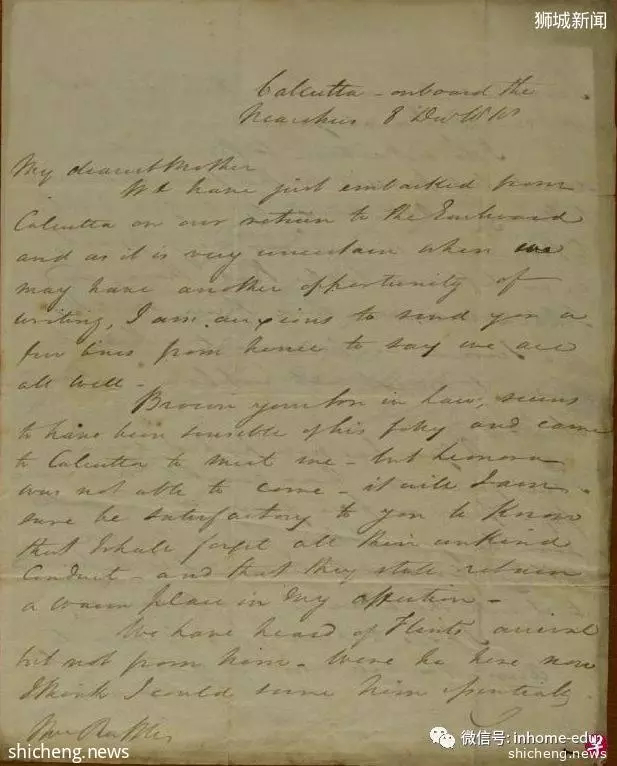 狮城新闻
Calcutta - onboard the
Nearchus 8 Decr
My dearest Mother
We have just embarked from
Calcutta on our return to the Eastward
and as it is very uncertain when we
may have another opportunity of
writing, I am anxious to send you a
few lines from hence to say we are
all well -
Brown your son in law, seems
to have been sensible of his folly and came
to Calcutta to meet me - but Leonora
was not able to come - it will I am
sure be satisfactory to you to know
that I shall forget all their unkind
conduct - and that they still retain
a warm place in my affection -
We have heard of Flints arrival
but not from him - Were he here now
I think I could serve him essentially.
Mrs Raffles
微信号: inhome-edu
shicheng.news
shicheng.news